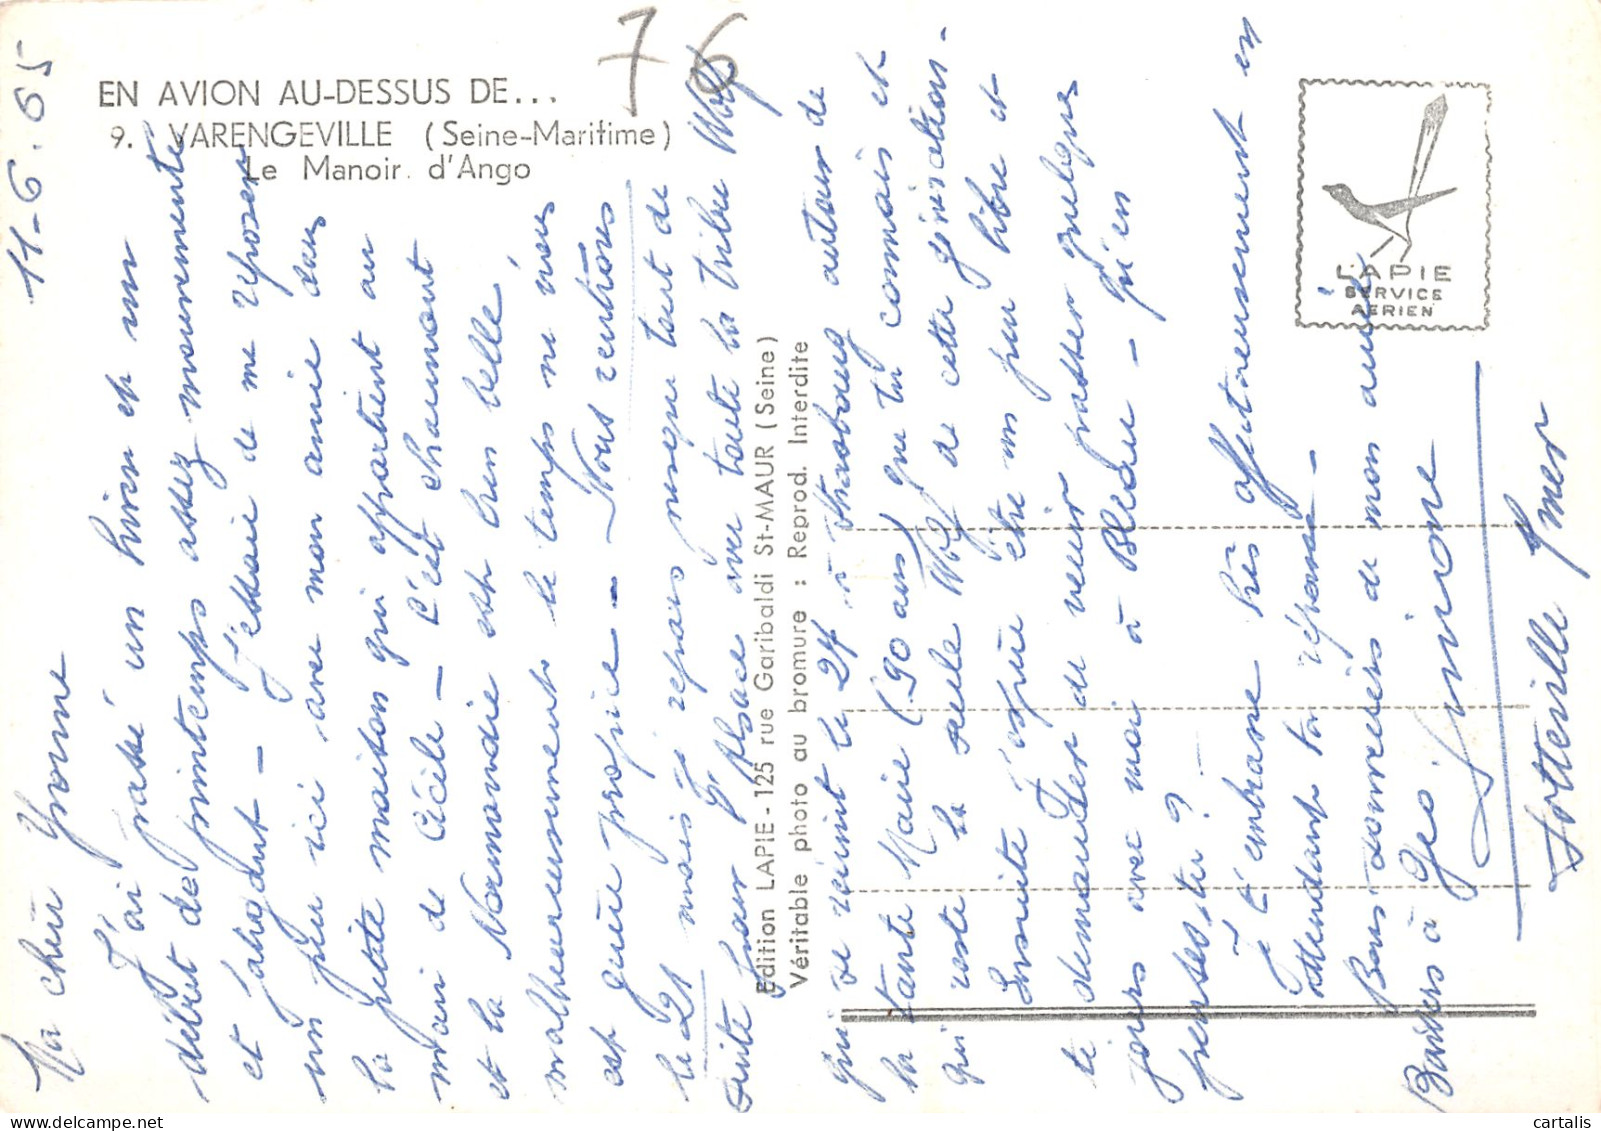 EN AVION AU-DESSUS DE...
9. VARENGEVILLE (Seine-Maritime)
Le Manoir d'Ango
76
LAPIE
SERVICE
AERIEN
Edition LAPIE - 125 rue Garibaldi St-MAUR (Seine)
Véritable photo au bromure : Reprod. Interdite
11-6.65
Ma chère Yvonne
J'ai passé un hiver et un
début de printemps assez mouvementés
et fatigant - J'essaie de me reposer
un peu ici avec mon amie dans
la petite maison qui appartient au
mari de Cécile - C'est charmant
et la Normandie est bien belle,
malheureusement le temps ne nous
est guère propice - Nous rentrons
le 21 mais je repars presque tout de
suite pour l'Alsace avec toute la tribu Wolf
qui se réunit le 24 à Strasbourg autour de
la tante Marie (90 ans) que tu connais et
qui reste la seule Wolf de cette génération -
Ensuite j'espère être un peu libre et
te demander de venir passer quelques
jours avec moi à - Qu'en
penses-tu ? -
Je t'embrasse très affectueusement en
attendant ta réponse -
Bons souvenirs de mon amie
Baisers à Geo
Simone
Sotteville s/mer